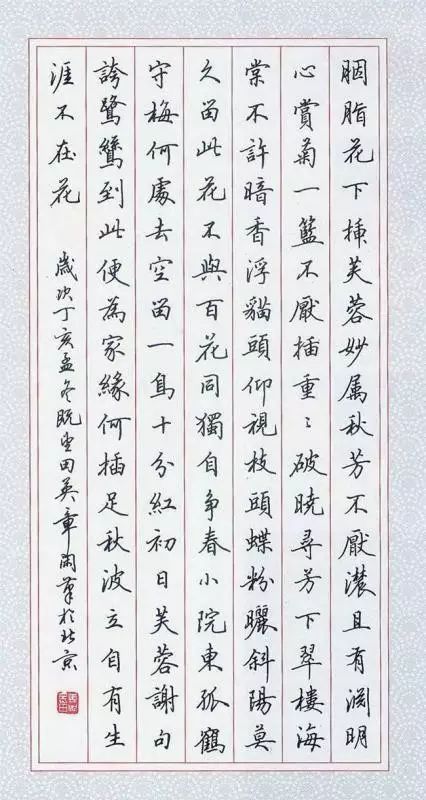 胭脂花下插芙蓉妙属秋芳不厭濃且有渊明
心賞菊一籃不厭插重〻破曉尋芳下翠樓海
棠不許暗香浮貓頭仰視枝頭蝶粉曬斜陽莫
久留此花不與百花同獨自争春小院東孤鶴
守梅何處去空留一鳥十分紅初日芙蓉謝句
誇鷺鷥到此便為家緣何插足秋波立自有生
涯不在花
歲次丁亥孟冬既望田英章閑筆於北京